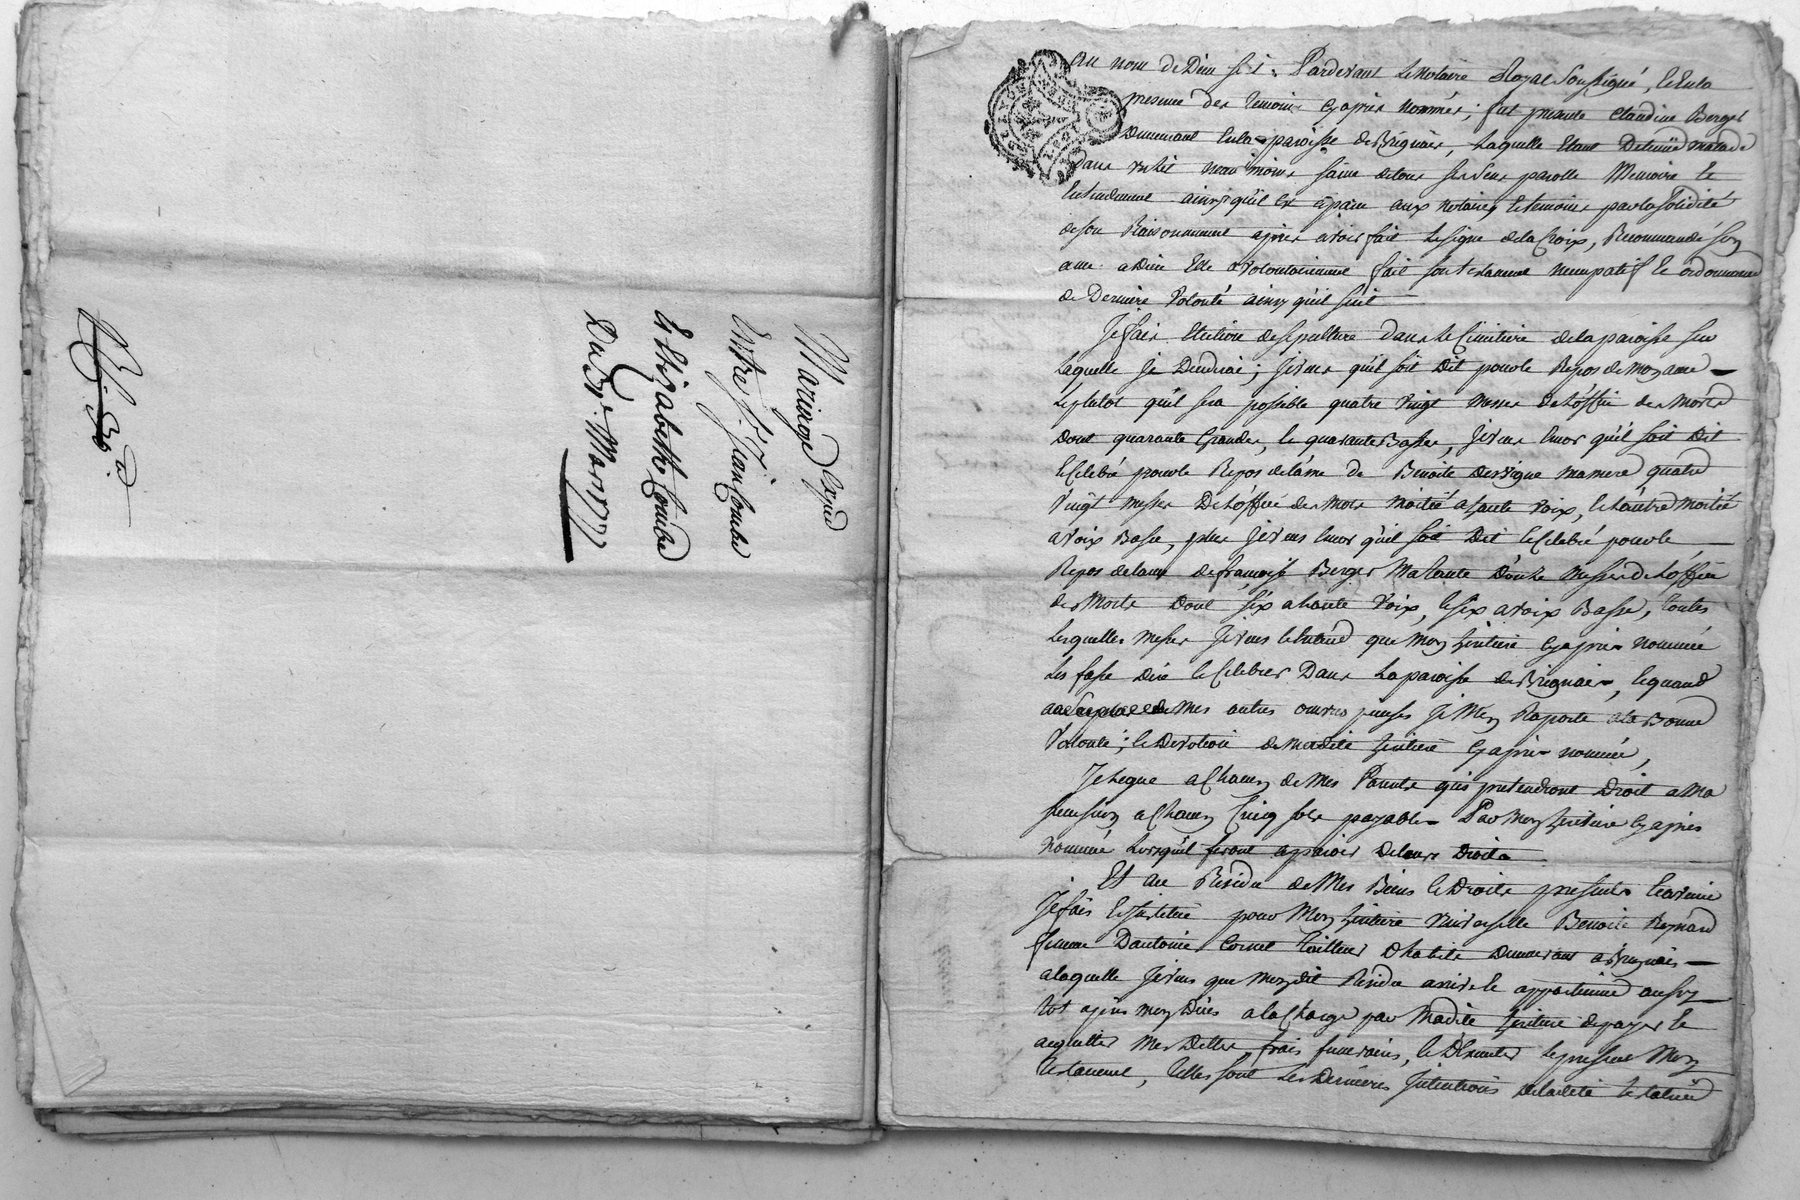 Mariage Exped
Entre Sr. Jean Combe
et Elizabeth Combe
Du 3e. Mars 1777
Au nom de Dieu soit. Pardevant le Notaire Royal Soussigné, et en la
presence des temoins cyapres nommés; fut presente Claudine Berger
Demeurant en la paroisse de Brignais, laquelle etant Detenüe malade
dans un lit neanmoins saine de tous ses sens parolle Memoire et
Entendement ainsy qu'il est aparu aux notaire et temoins par la solidité
de son Raisonnement apres avoir fait le signe de la Croix, Recommandé son
ame a Dieu Elle a volontairement fait son testament nuncupatif et ordonnance
de Derniere Volonté ainsy qu'il suit
Je fais Election de sepulture dans le Cimitiere de la paroisse sur
laquelle je Decederai; je veux qu'il soit Dit pour le Repos de mon ame
le plutot qu'il sera possible quatre vingt messes de l'offïce des Morts
dont quarante Grandes, et quarante Basses, je veux encor qu'il soit Dit
et Celebré pour le Repos de l'ame de Benoite Dervigue ma mere quatre
vingt messes De l'offïce des Morts moitié a haute voix, et l'autre moitié
a voix Basse, plus je veux encor qu'il soit Dit et Celebré pour le
Repos de l'ame de françoise Berger Ma tante Douze messes de l'offïce
des Morts dont six a haute voix, et six a voix Basse, toutes
lesquelles messes je veux et entend que mon heritiere cyapres nommée
les fasse dire et Celebrer Dans la paroisse de Brignais, et quand
a mes autres œuvres pieuses je m'en Raporte a la Bonne
Volonté; et Devotion de madite heritiere cyapres nommée,
Je legue a Chacun de Mes Parents qui pretendront Droit a Ma
succession a Chacun Cinq sols payables Par mon heritiere cyapres
nommée lorsqu'il feront aparoir de leurs Droits
Et au Residu de Mes Biens et Droits presents et avenir
je fais et institue pour Mon heritiere Universelle Benoite Reynard
femme D'antoine Cornet tailleur D'habits Demeurant a Brignais
a laquelle je veux que mondit Residu arrive et appartienne aussy
tot apres mon Deces a la Charge par Madite heritiere de payer et
acquitter Mes Dettes, frais funeraires, et D'executer le present Mon
testament, telles sont les Dernieres intentions de ladite testatrice